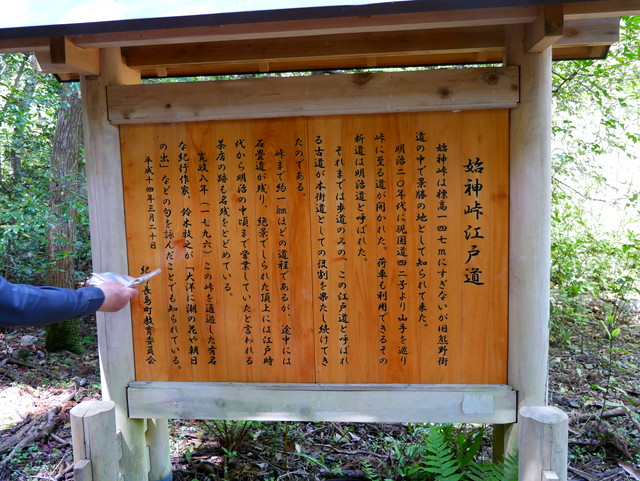 始神峠江戸道
始神峠は標高一四七mにすぎないが旧熊野街
道の中で景勝の地として知られて来た。
明治二〇年代に現国道四二号より山手を巡り
峠に至る道が開かれた。荷車も利用できるその
新道は明治道と呼ばれた。
それまでは歩道のみの、この江戸道と呼ばれ
る古道が本街道としての役割を果たし続けてき
たのである。
峠まで約一㎞ほどの道程であるが、途中には
石畳道が残り、絶景でしられた頂上には江戸時
代から明治の中頃まで営業していたと言われる
茶店の跡も名残をとどめている。
寛政八年（一七九六）この峠を通過した有名
な紀行作家、鈴木牧之が「大洋に潮の花や朝日
の出」などの句を詠んだことでも知られている。
平成十四年三月二十日
紀伊長島町教育委員会